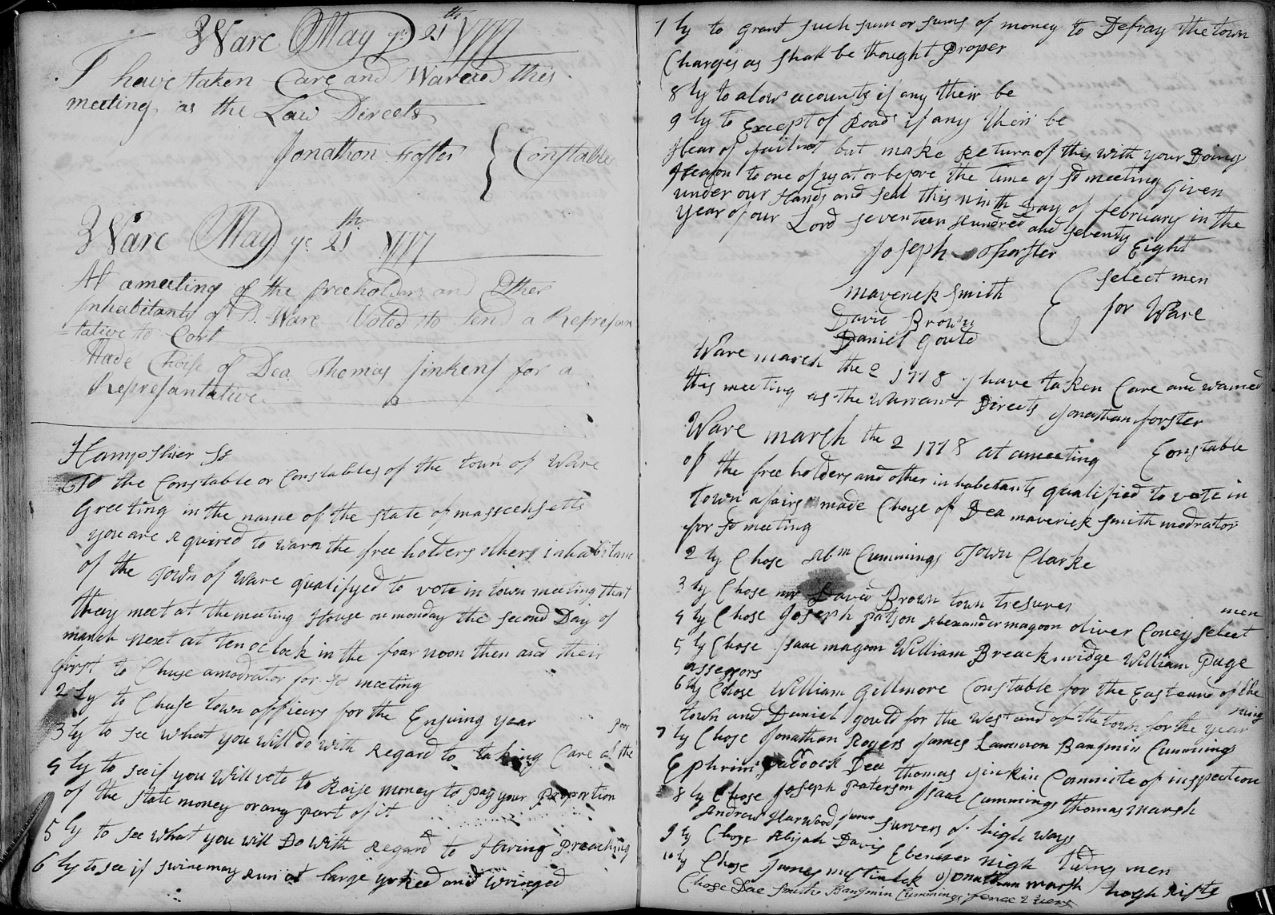 Ware May ye 21th 1777
I have taken Care and Warned this
meeting as the Law Directs
Jonathan Foster { Constable
Ware May ye 21th 1777
At a meeting of the freeholders and Other
Inhabitants of sd Ware Voted to send a Represen
tative to Cort
Made Choise of Dea Thomas Jinkens for a
Representative
Hampshier Ss
To the Constable or Constables of the town of Ware
Greeting in the name of the State of massechsetts
you are Required to warn the free holders others inhabitance
of the Town of Ware qualifyed to vote in town meeting that
they meet at the meeting House on monday the second Day of
march next at ten o Clock in the foar noon then and their
first to Chuse a modrator for sd meeting
2 ly to Chuse town officers for the Ensuing year
3 ly to see what you will do with Regard to taking Care of the
4 ly to see if you will vote to Raise money to pay your proportion
of the State money or any part of it
5 ly to see what you will Do with Regard to Having Preaching
6 ly to see if swine may Run at large yorked and wringed
7 ly to grant such sum or sums of money to Defray the town
Charges as shall be thought Proper
8 ly to alow acounts if any their be
9 ly to Except of Roads if any their be
hear of fail not but make Return of this with your Doing
hearon to one of us at or before the time of sd meeting Given
under our Hands and seal this ninth Day of february in the
year of our Lord seventeen hundred and seventy Eight
Joseph Forster
maverick Smith
David Brown
Daniel Gould
{ select men
for Ware
Ware march the 2 1778 I have taken Care and warned
this meeting as the Warrant Directs Jonathan forster
Constable
Ware march the 2 1778 at a meeting
of the free holders and other inhabetants qualified to vote in
Town afairs made Chose of Dea maverick Smith modrator
for sd meeting
2 ly Chose Abm Cummings Town Clarke
3 ly Chose mr David Brown town tresurer
4 ly Chose Joseph patson Alexander magoon oliver Coney select
men
5 ly Chose Isaac magoon William Breackinridge William Page
assessors
6 ly Chose William Gillmore Constable for the East end of the
town and Daniel gould for the West and of the town for the year
7 ly Chose Jonathan Rogers James Lammon Bangmin Cummings
Ephrim Dea thomas Jinkin Committe of inspection
8 ly Chose Joseph Paterson Isaac Cummings thomas marsh
Andrew Harwood survers of high ways
9 ly Chose Abijah Davis Ebenezer nigh tiding men
10 ly Chose James Jonathan marsh hogh Rifts
Chose Dae Smith Bangmin Cummings